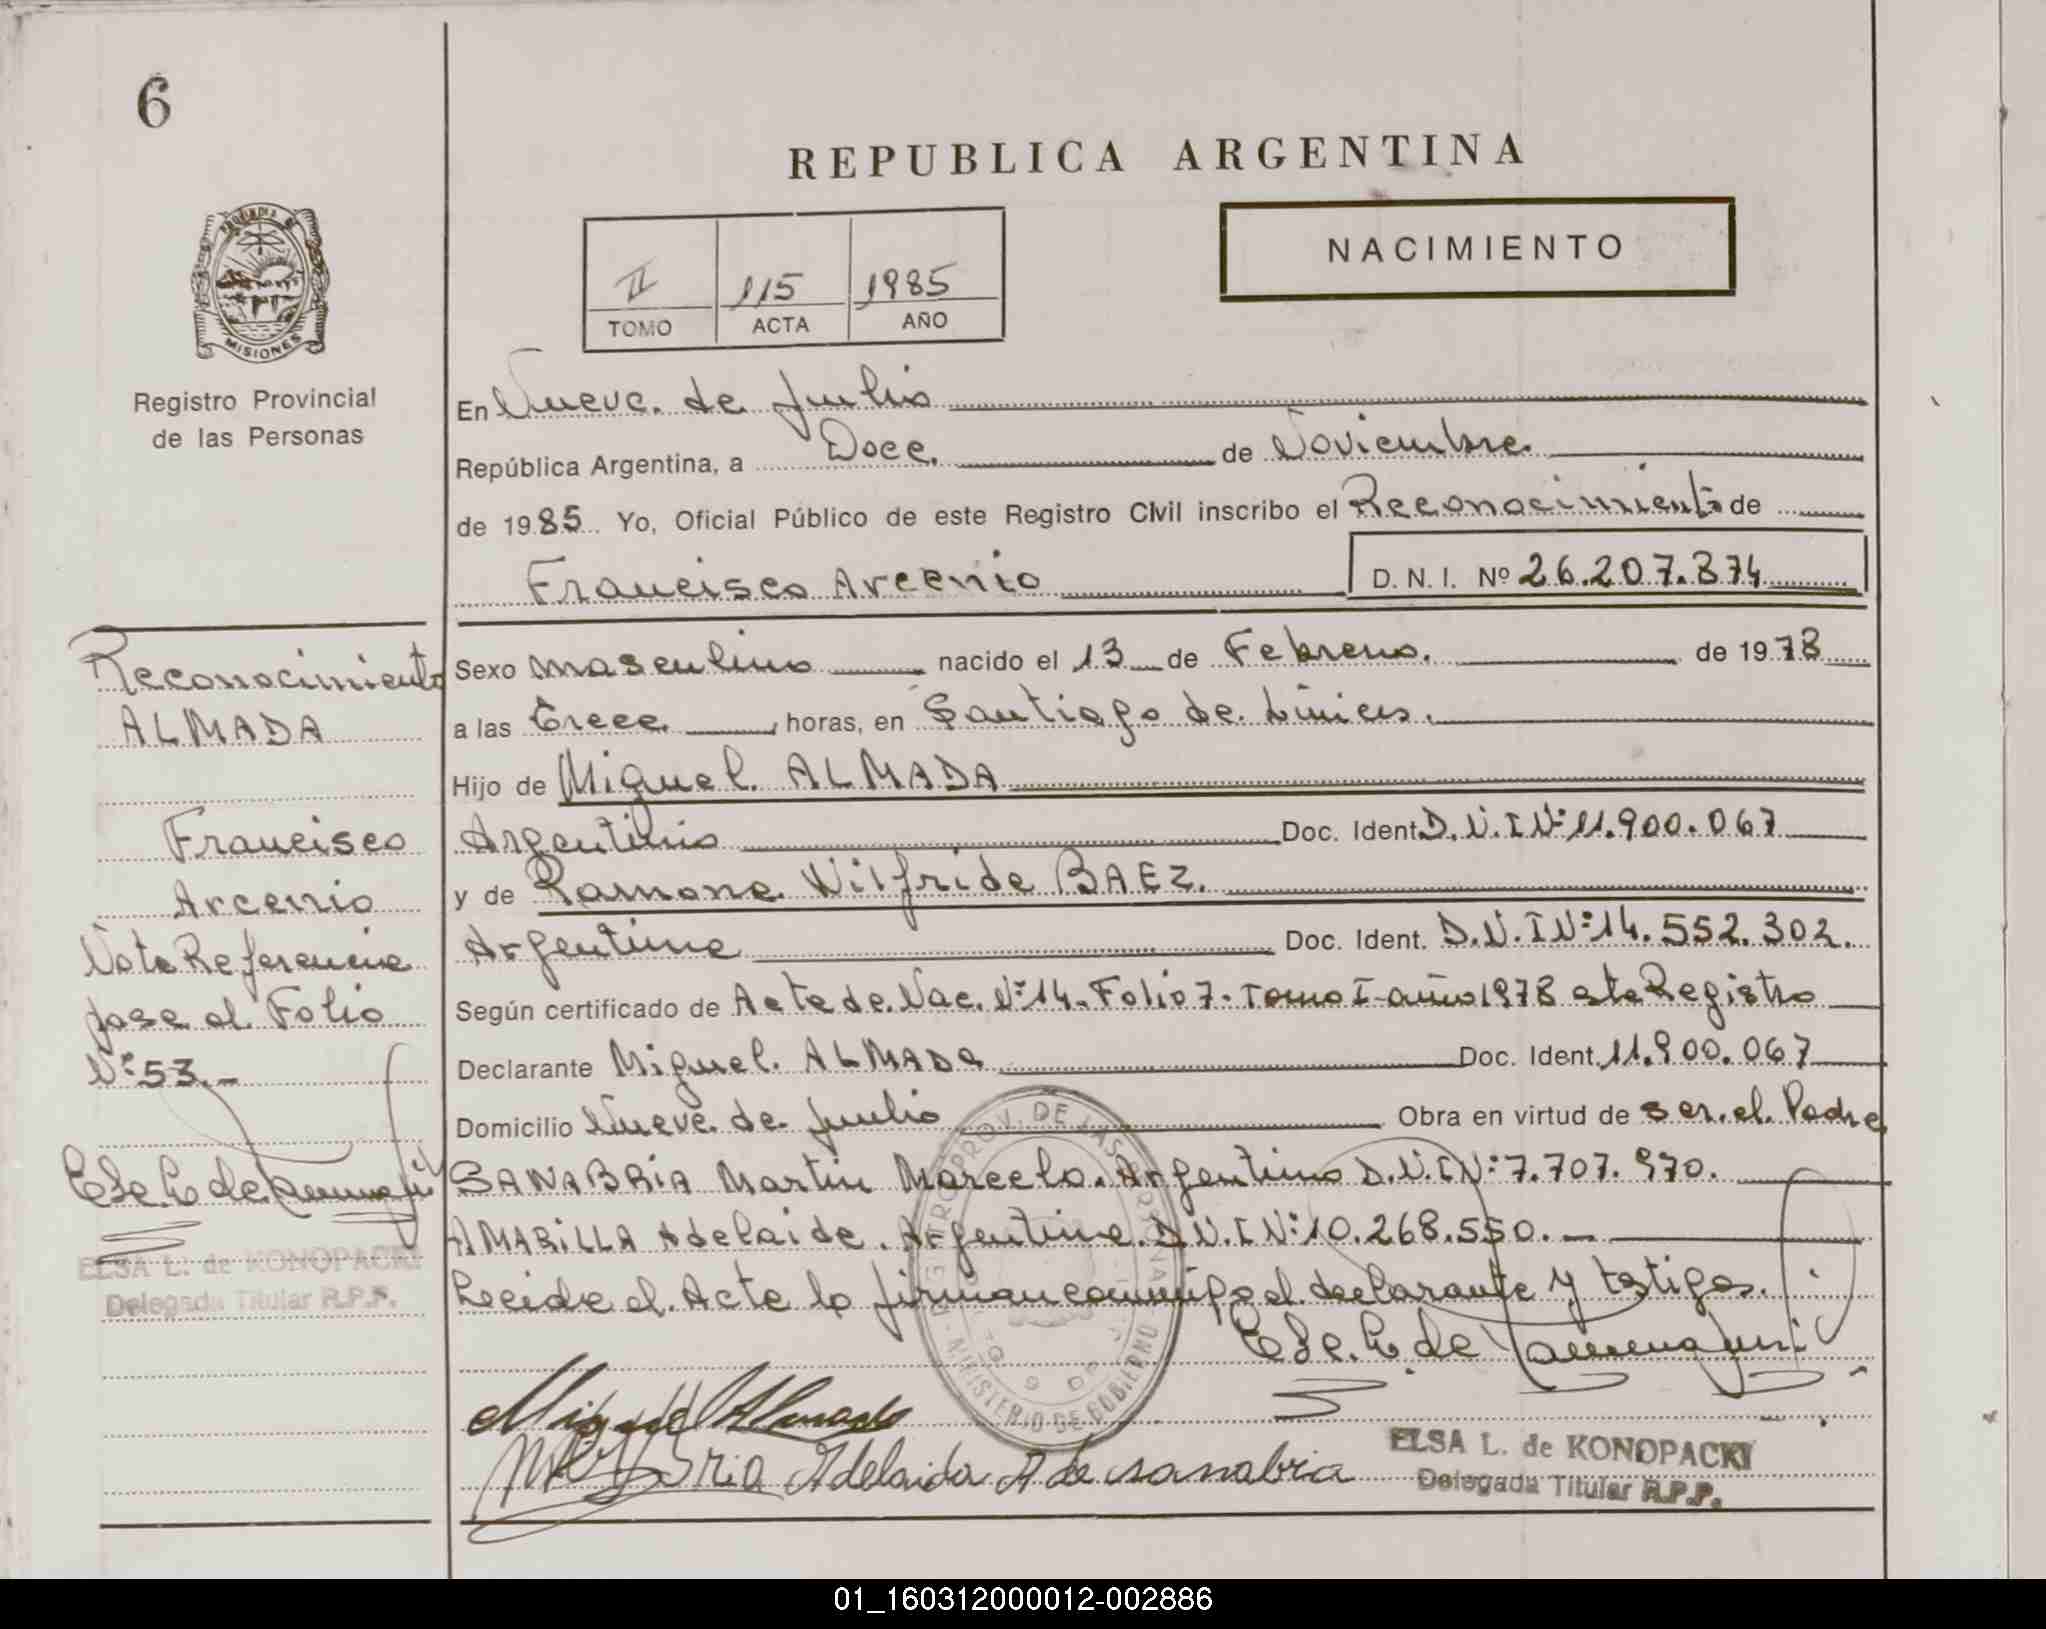 6
REPUBLICA ARGENTINA
NACIMIENTO
II 115 1985
TOMO ACTA AÑO
PROVINCIA DE
MISIONES
Registro Provincial
de las Personas
En Nueve de Julio
República Argentina, a Doce de Noviembre
de 1985 Yo, Oficial Público de este Registro Civil inscribo el Reconocimiento de
Francisco Arcenio D.N.I. Nº 26.207.874
Reconocimiento
ALMADA
Francisco
Arcenio
Nota Referencia
pase al Folio
Nº 53.-
ELSA L. de KONOPACKI
Delegada Titular R.P.P.
Sexo masculino nacido el 13 de Febrero. de 1978
a las trece horas, en Santiago de Liniers.
Hijo de Miguel ALMADA
Argentino Doc. Ident. D.N.I Nº 11.900.067
y de Ramona Wilfrida BAEZ.
Argentina Doc. Ident. D.N.I Nº 14.552.302.
Según certificado de Acta de Nac. Nº 14- Folio 7- Tomo I- año 1978 este Registro
Declarante Miguel ALMADA Doc. Ident. 11.900.067
Domicilio Nueve de Julio Obra en virtud de ser el Padre
SANABRIA Martin Marcelo. Argentino D.N.I Nº 7.707.970.
AMARILLA Adelaida. Argentina D.N.I Nº 10.268.550.-
Leida el Acta la firman conmigo el declarante y testigos.
Miguel Almada
Adelaida A de sanabria
ELSA L. de KONOPACKI
Delegada Titular R.P.P.
MINISTERIO DE GOBIERNO
01_160312000012-002886